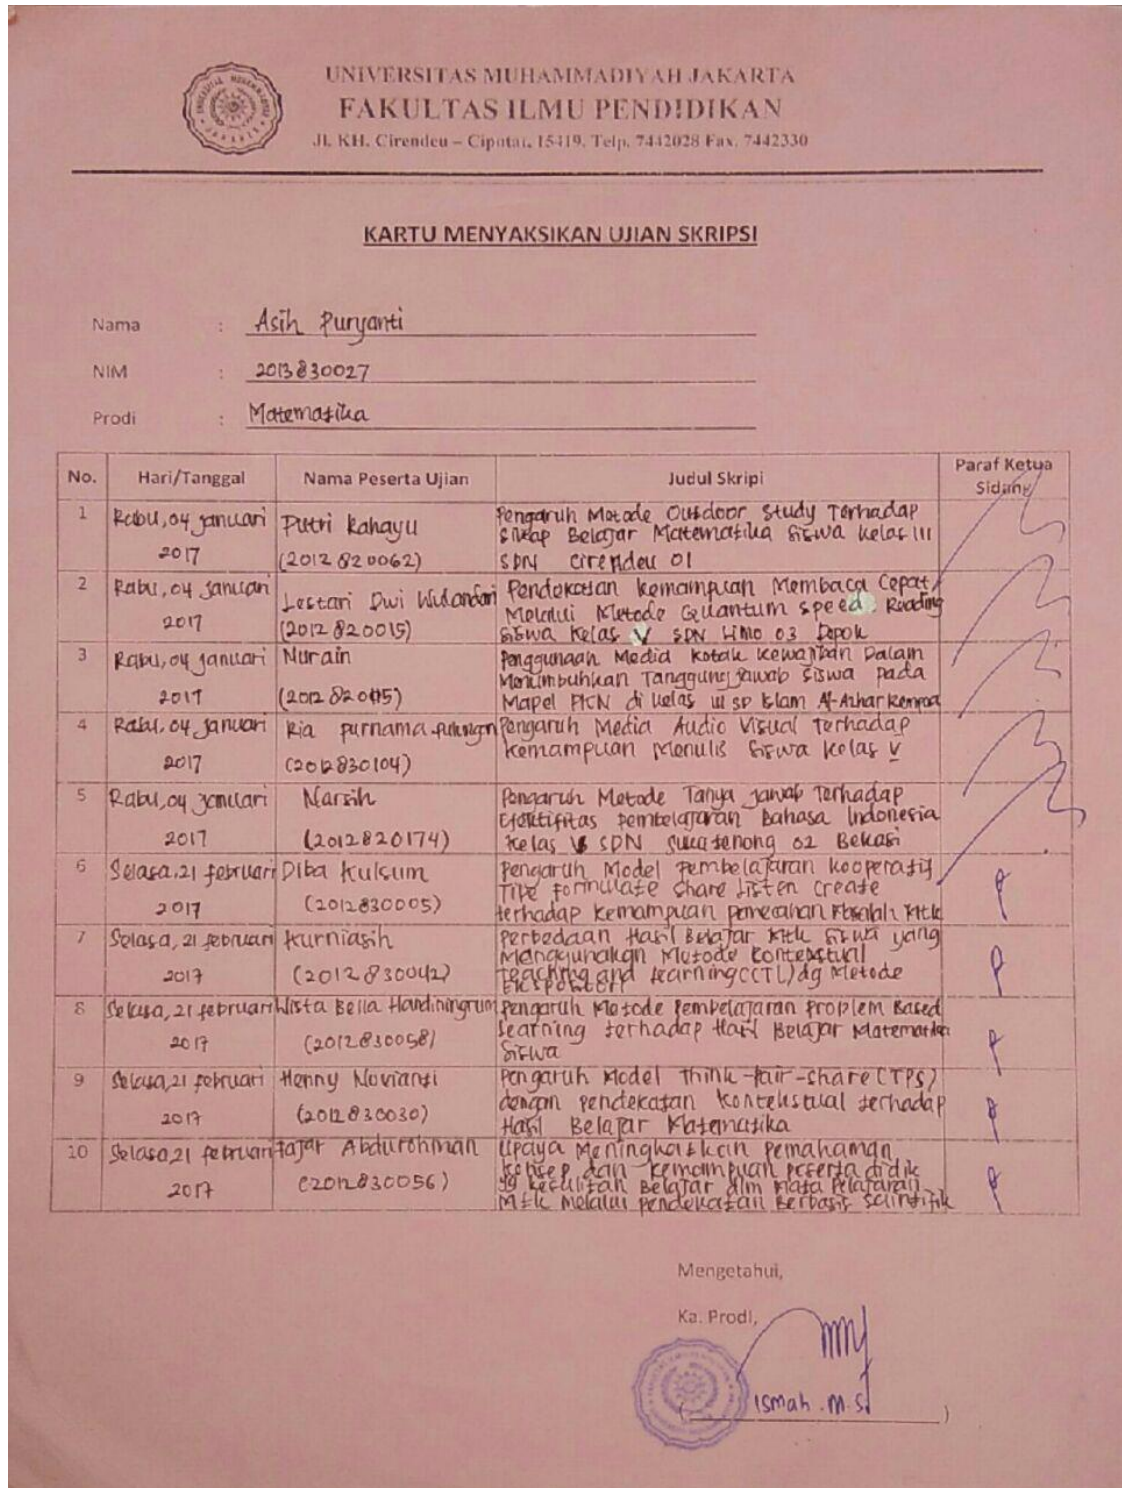 UNIVERSITAS MUHAMMADIYAH JAKARTA
FAKULTAS ILMU PENDIDIKAN
Jl. KH. Cirendeu – Ciputat, 15419, Telp. 7442028 Fax. 7442330
KARTU MENYAKSIKAN UJIAN SKRIPSI
Nama : Asih Puryanti
NIM : 2013830027
Prodi : Matematika
No. Hari/Tanggal Nama Peserta Ujian Judul Skripi Paraf Ketua Sidang
1 Rabu, 04 Januari 2017 Putri Rahayu (2012820062)
Pengaruh Metode Outdoor Study Terhadap
Sikap Belajar Matematika Siswa Kelas III
SDN Cirendeu 01
2 Rabu, 04 Januari 2017 Lestari Dwi Wulandari (2012820015)
Pendekatan Kemampuan Membaca Cepat
Melalui Metode Quantum Speed Reading
Siswa Kelas V SDN Limo 03 Depok
3 Rabu, 04 Januari 2017 Nurain
Penggunaan Media Kotak Kewajiban Dalam
Menumbuhkan Tanggung Jawab Siswa Pada
Mapel PKN di Kelas III SD Islam Al-Azhar
4 Rabu, 04 Januari 2017 Ria Purnama (2012830104)
Pengaruh Media Audio Visual Terhadap
Kemampuan Menulis Siswa Kelas V
5 Rabu, 04 Januari 2017 Narsih (2012820174)
Pengaruh Metode Tanya Jawab Terhadap
Efektifitas Pembelajaran Bahasa Indonesia
Kelas V SDN Sukatenong 02 Bekasi
6 Selasa, 21 februari 2017 Diba Kulsum (2012830005)
Pengaruh Model Pembelajaran Kooperatif
Tipe Formulate Share Listen Create
terhadap Kemampuan Pemecahan Mtk
7 Selasa, 21 februari 2017 Kurniasih (2012830042)
Perbedaan Hasil Belajar Mtk Siswa yang
Menggunakan Metode Kontekstual
Teaching and Learning (CTL) dg Metode
Ekspositori
8 Selasa, 21 februari 2017 Wista Bella Handiningrum (2012830058)
Pengaruh Metode Pembelajaran Problem Based
Learning terhadap Hasil Belajar Matematika
Siswa
9 Selasa, 21 februari 2017 Henny Novianti (2012830030)
Pengaruh Model Think-Pair-Share (TPS)
dengan pendekatan Kontekstual terhadap
Hasil Belajar Matematika
10 Selasa, 21 februari 2017 Fajar Abdurohman (2012830056)
Upaya Meningkatkan Pemahaman
Konsep dan Kemampuan peserta didik
yg kesulitan Belajar dlm Mata Pelajaran
Mtk melalui pendekatan Berbasis Saintifik
Mengetahui,
Ka. Prodi,
(Ismah. M.Si)